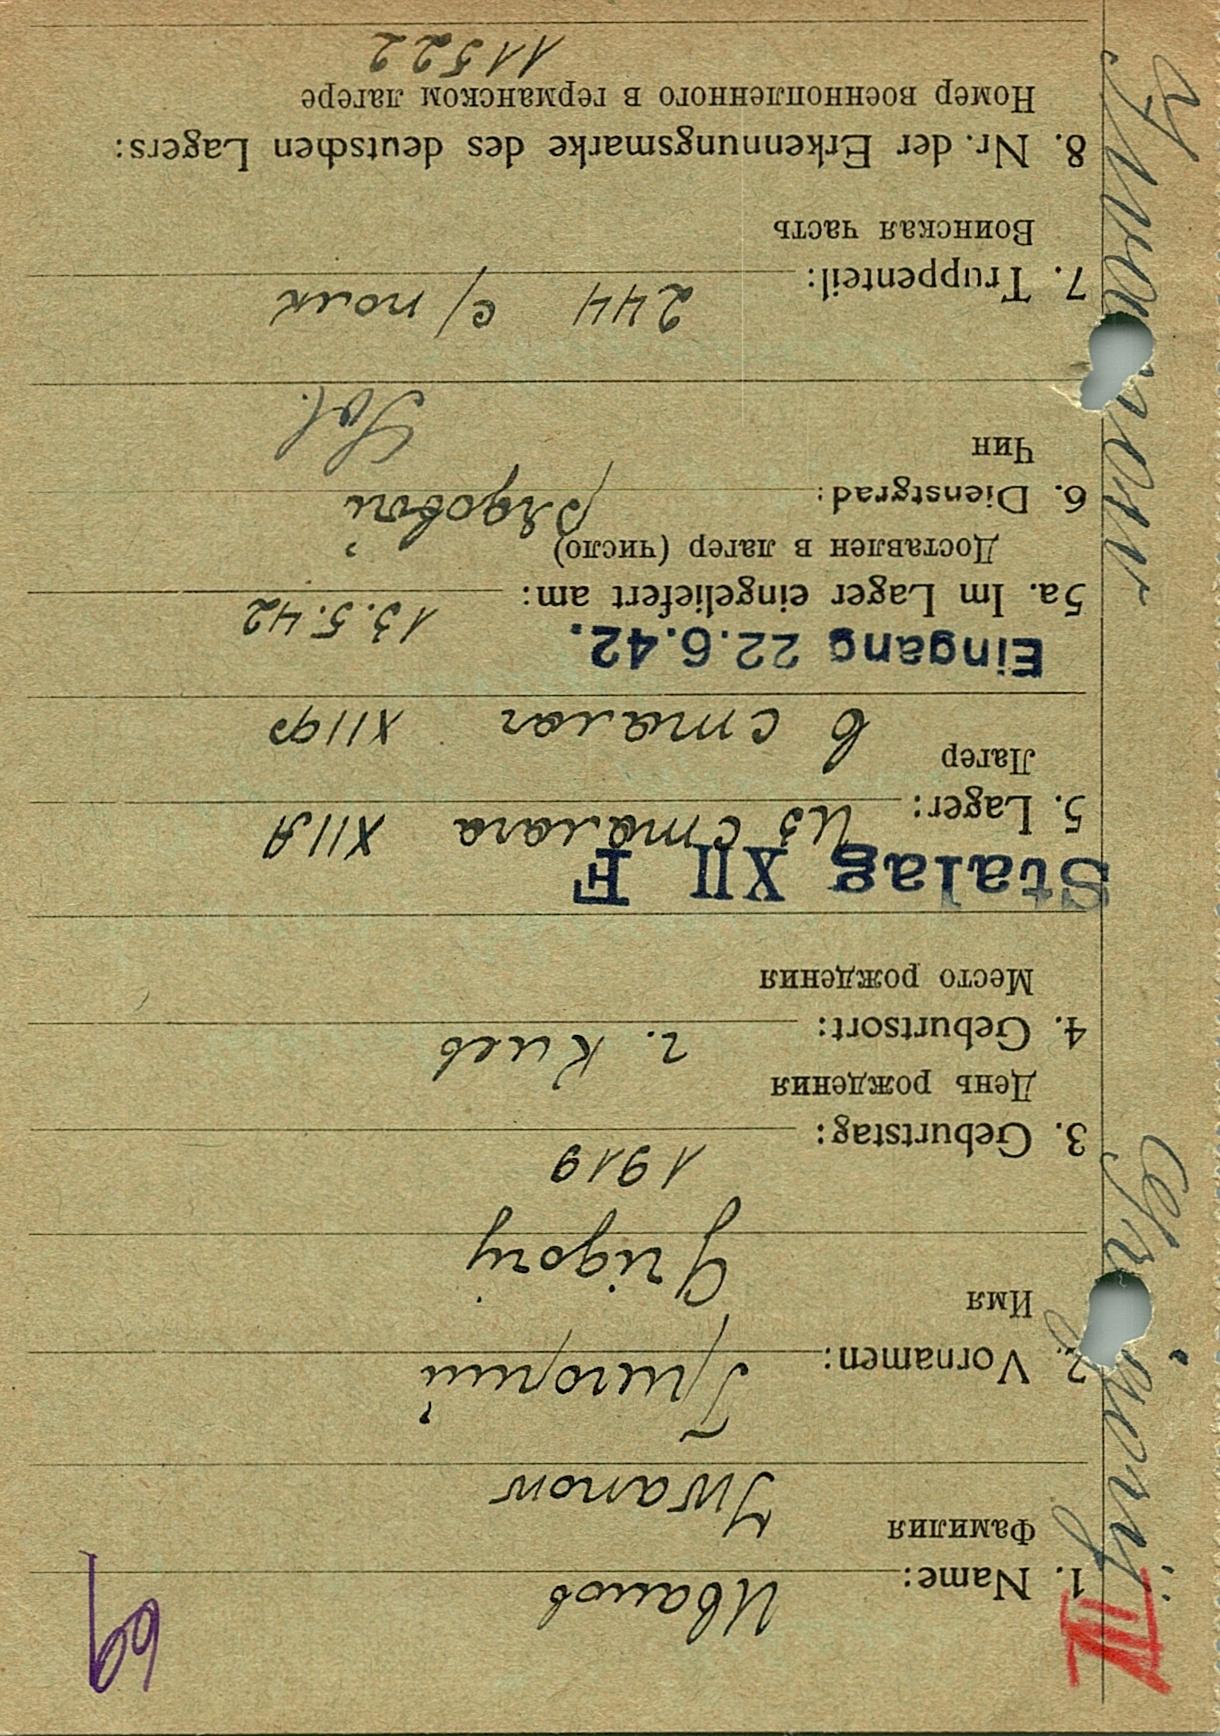 69
III
1. Name: Иванов
Фамилия Iwanow
2. Vornamen: Григорий
Имя Grigorij
3. Geburtstag: 1919
День рождения
4. Geburtsort: г. Киев
Место рождения
Stalag XII F
5. Lager: из сталага XII A
Лагер в сталаг XII ф
Eingang 22.6.42.
5a. Im Lager eingeliefert am: 13.5.42
Доставлен в лагер (число)
6. Dienstgrad: рядовой
Чин Sol.
7. Truppenteil: 244 с/полк
Воинская часть
8. Nr. der Erkennungsmarke des deutschen Lagers:
Номер военнопленного в германском лагере
11522
Iwanow
Grigorij